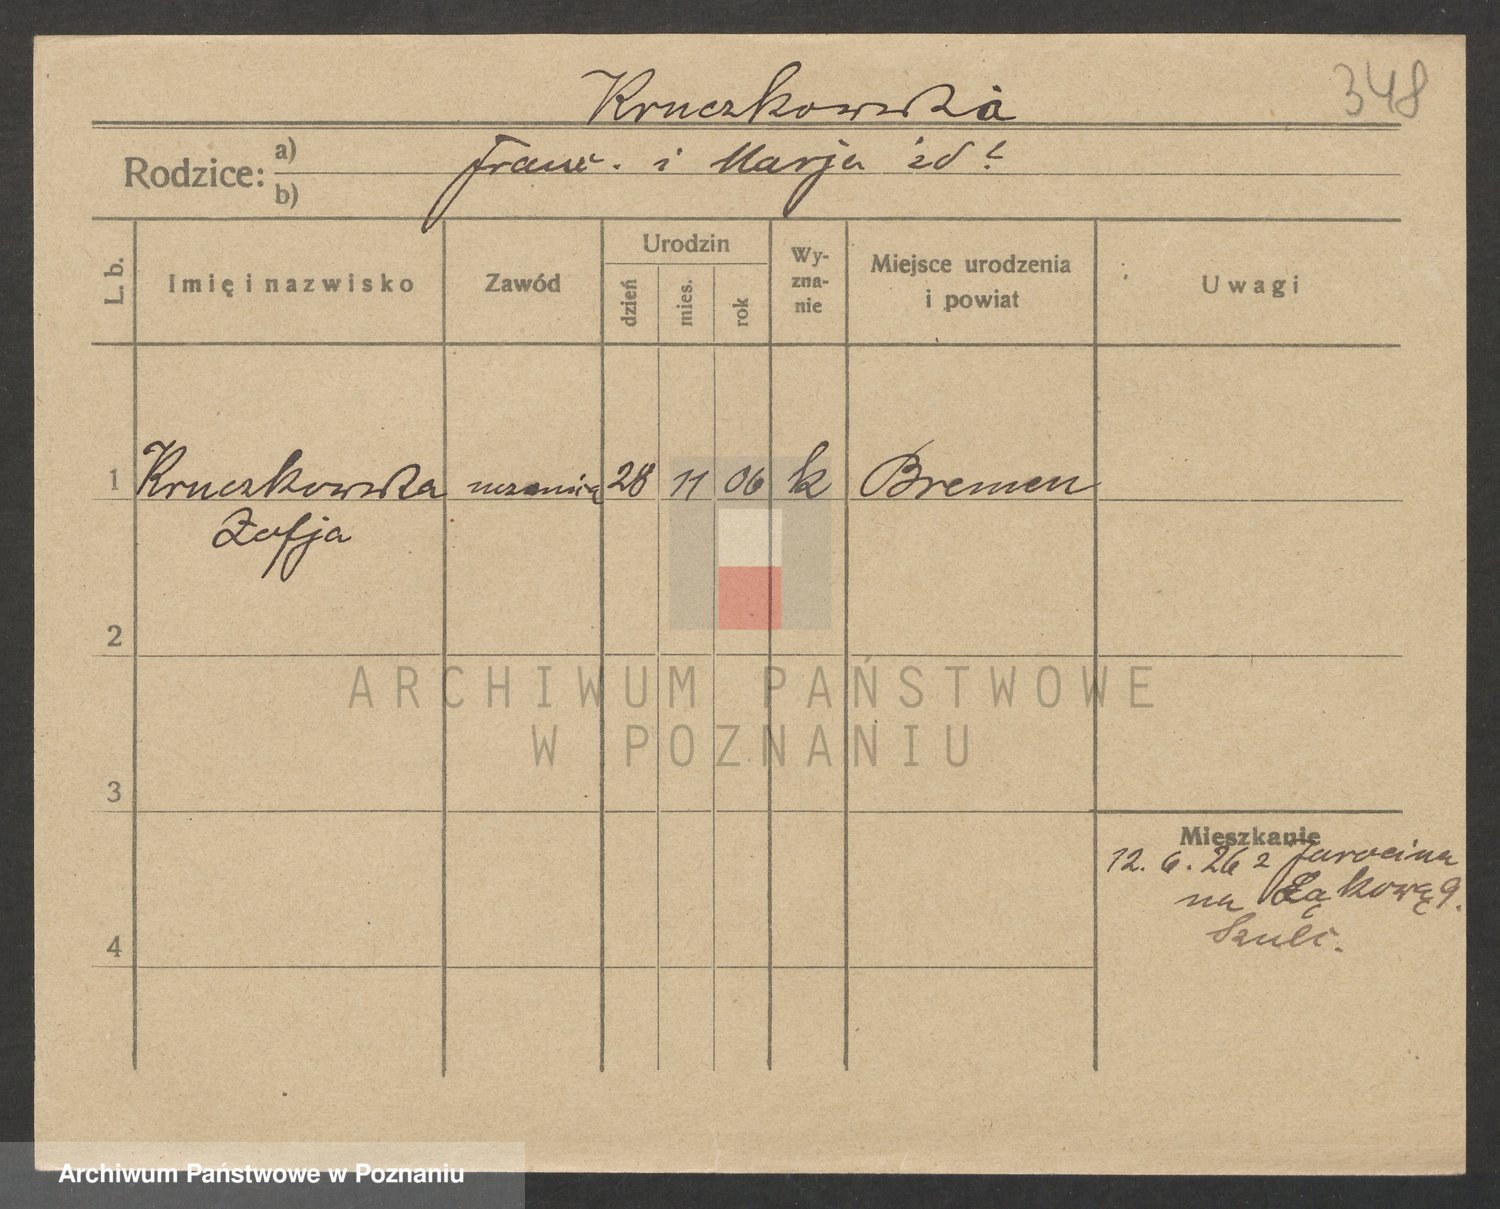 Kruczkowska
348
Rodzice: a) Franc. i Marja
b)
L. b.
Imię i nazwisko
Zawód
Urodzin
dzień
mies.
rok
Wy-
zna-
nie
Miejsce urodzenia
i powiat
Uwagi
1 Kruczkowska uczenica 28 11 06 k Bremen
Zofja
2
3
4
Mieszkanie
12. 6. 26 z Jarocina
na Łąkową 9.
Szulc.
ARCHIWUM PAŃSTWOWE
W POZNANIU
Archiwum Państwowe w Poznaniu